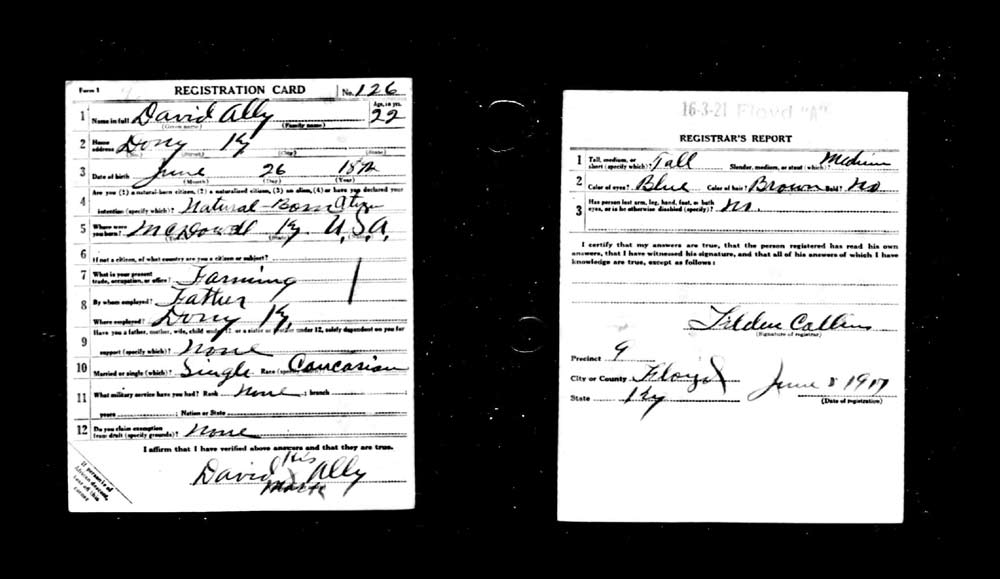 Form 1 REGISTRATION CARD No. 126
1 Name in full David Ally Age, in yrs. 22
(Given name) (Family name)
2 Home address Dony Ky
(No.) (Street) (City) (State)
3 Date of birth June 26
(Month) (Day) (Year)
4 Are you (1) a natural-born citizen, (2) a naturalized citizen, (3) an alien, (4) or have you declared your
intention (specify which)? Natural-Born Citizen
5 Where were you born? McDowell Ky. U.S.A.
6 If not a citizen, of what country are you a citizen or subject?
7 What is your present trade, occupation, or office? Farming
8 By whom employed? Father
Where employed? Dony Ky.
9 Have you a father, mother, wife, child under 12, or a sister or brother under 12, solely dependent on you for
support (specify which)? None
10 Married or single (which)? Single Race (specify which)? Caucasian
11 What military service have you had? Rank None ; branch
years ; Nation or State
12 Do you claim exemption from draft (specify grounds)? None
I affirm that I have verified above answers and that they are true.
His
David X Ally
Mark
If person is of African descent, tear off this corner
16-3-21 Floyd "A"
REGISTRAR'S REPORT
1 Tall, medium, or short (specify which)? Tall Slender, medium, or stout (which)? Medium
2 Color of eyes? Blue Color of hair? Brown Bald? No
3 Has person lost arm, leg, hand, foot, or both eyes, or is he otherwise disabled (specify)? No.
I certify that my answers are true, that the person registered has read his own
answers, that I have witnessed his signature, and that all of his answers of which I have
knowledge are true, except as follows:
Collins
(Signature of registrar)
Precinct 9
City or County Floyd
State Ky
June 1917
(Date of registration)